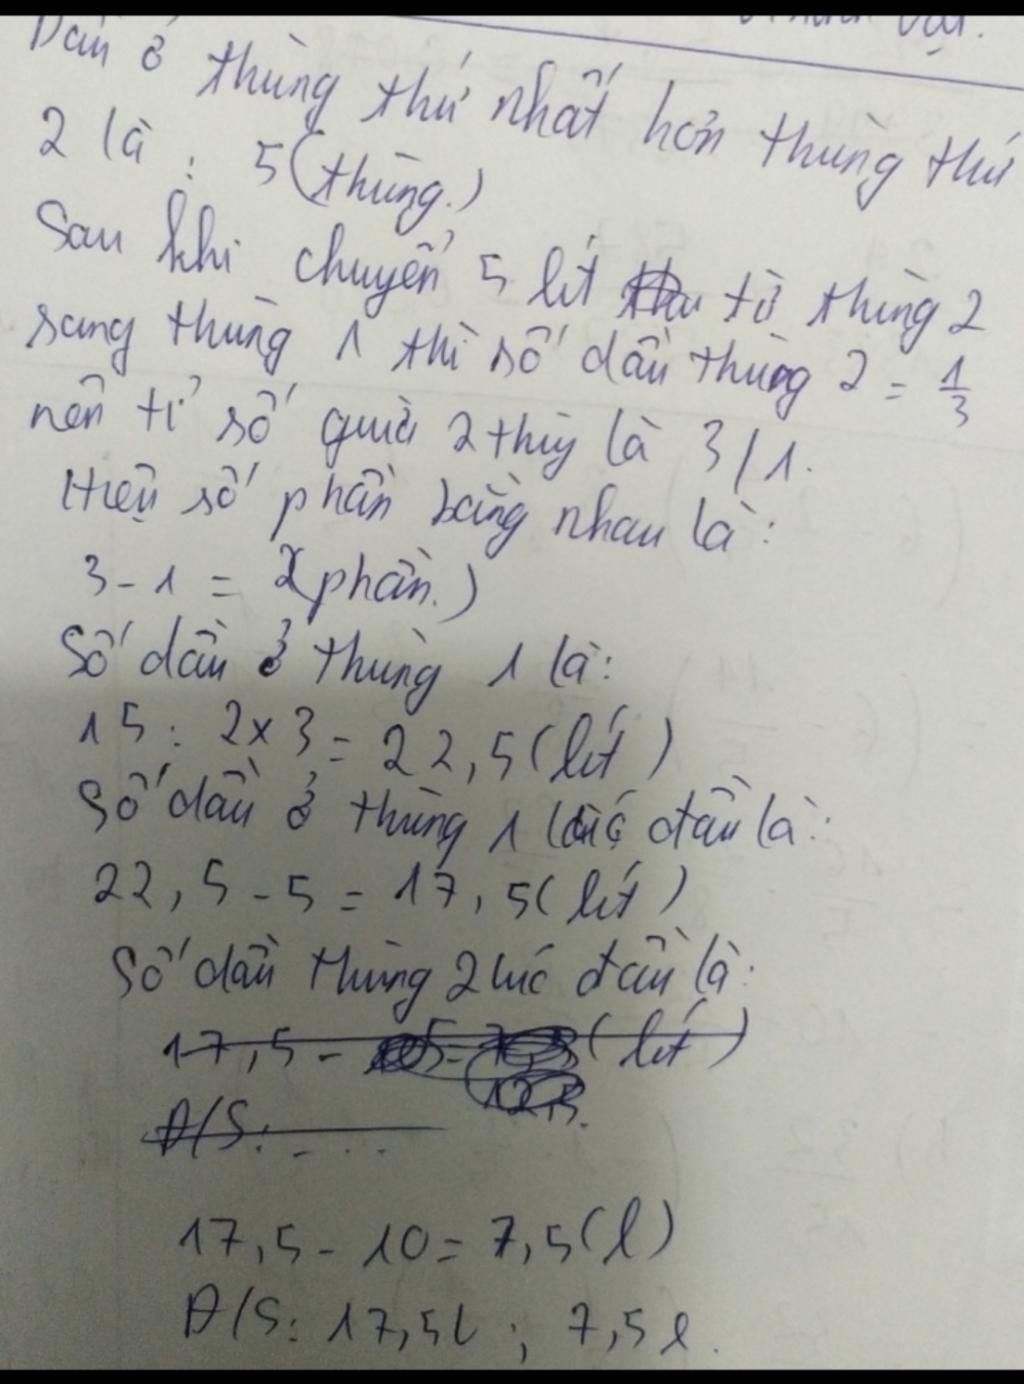 vật.
Dầu ở thùng thứ nhất hơn thùng thứ
2 là : 5 (thùng.)
Sau khi chuyển 5 lít từ thùng 2
sang thùng 1 thì số dầu thùng 2 = 1/3
nên tỉ số giữa 2 thùg là 3/1.
Hiệu số phần bằng nhau là:
3 - 1 = 2 (phần.)
Số dầu ở thùng 1 là:
15 : 2 x 3 = 22,5 (lít)
Số dầu ở thùng 1 lúc đầu là:
22,5 - 5 = 17,5 (lít)
Số dầu thùng 2 lúc đầu là:
17,5 - (lít)
Đ/S: ....
17,5 - 10 = 7,5 (l)
Đ/S: 17,5l ; 7,5l.